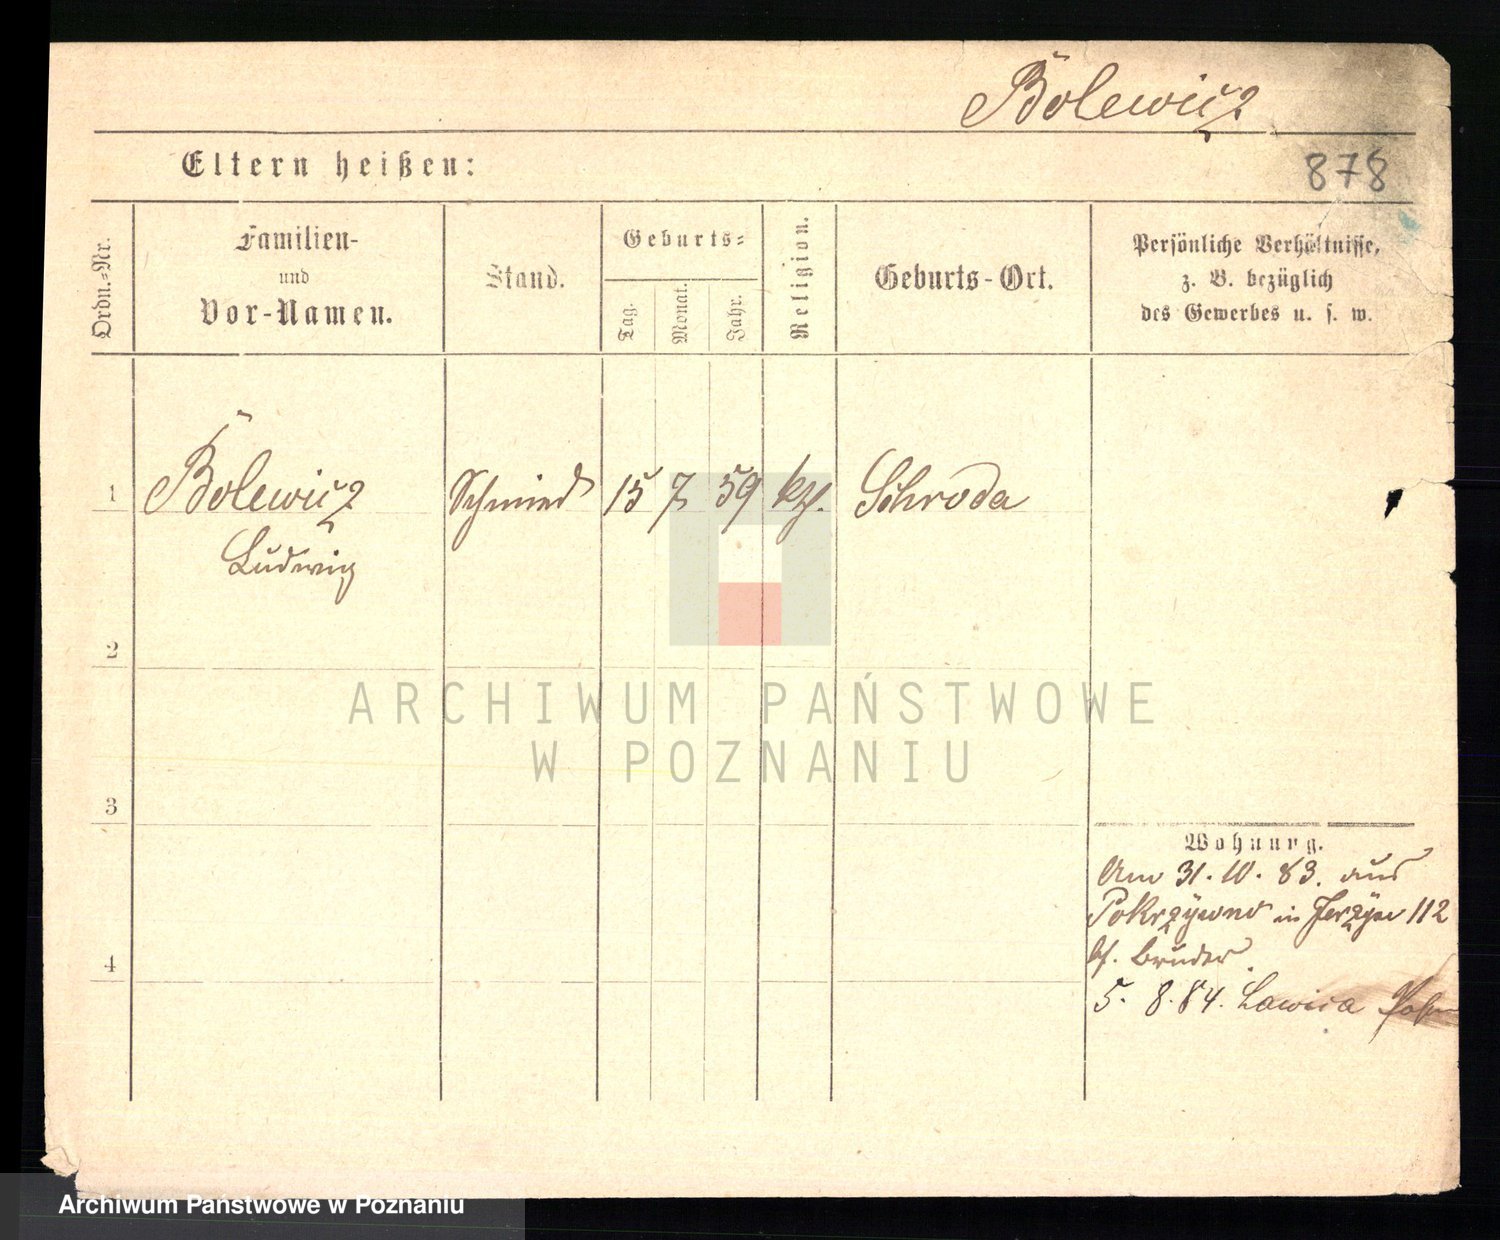 Bolewicz
Eltern heißen:
878
Ordn.-Nr.
Familien-
und
Vor-Namen.
Stand.
Geburts-
Tag.
Monat.
Jahr.
Religion.
Geburts-Ort.
Persönliche Verhältnisse,
z. B. bezüglich
des Gewerbes u. s. w.
1 Bolewicz Schmied 15 7 59 kth. Schroda
Ludwig
2
3
4
Wohnung.
Am 31. 10. 83. aus
Pokrzywno in Jerzyce 112
bf. Bruder.
5. 8. 84. Lawica
ARCHIWUM PAŃSTWOWE
W POZNANIU
Archiwum Państwowe w Poznaniu